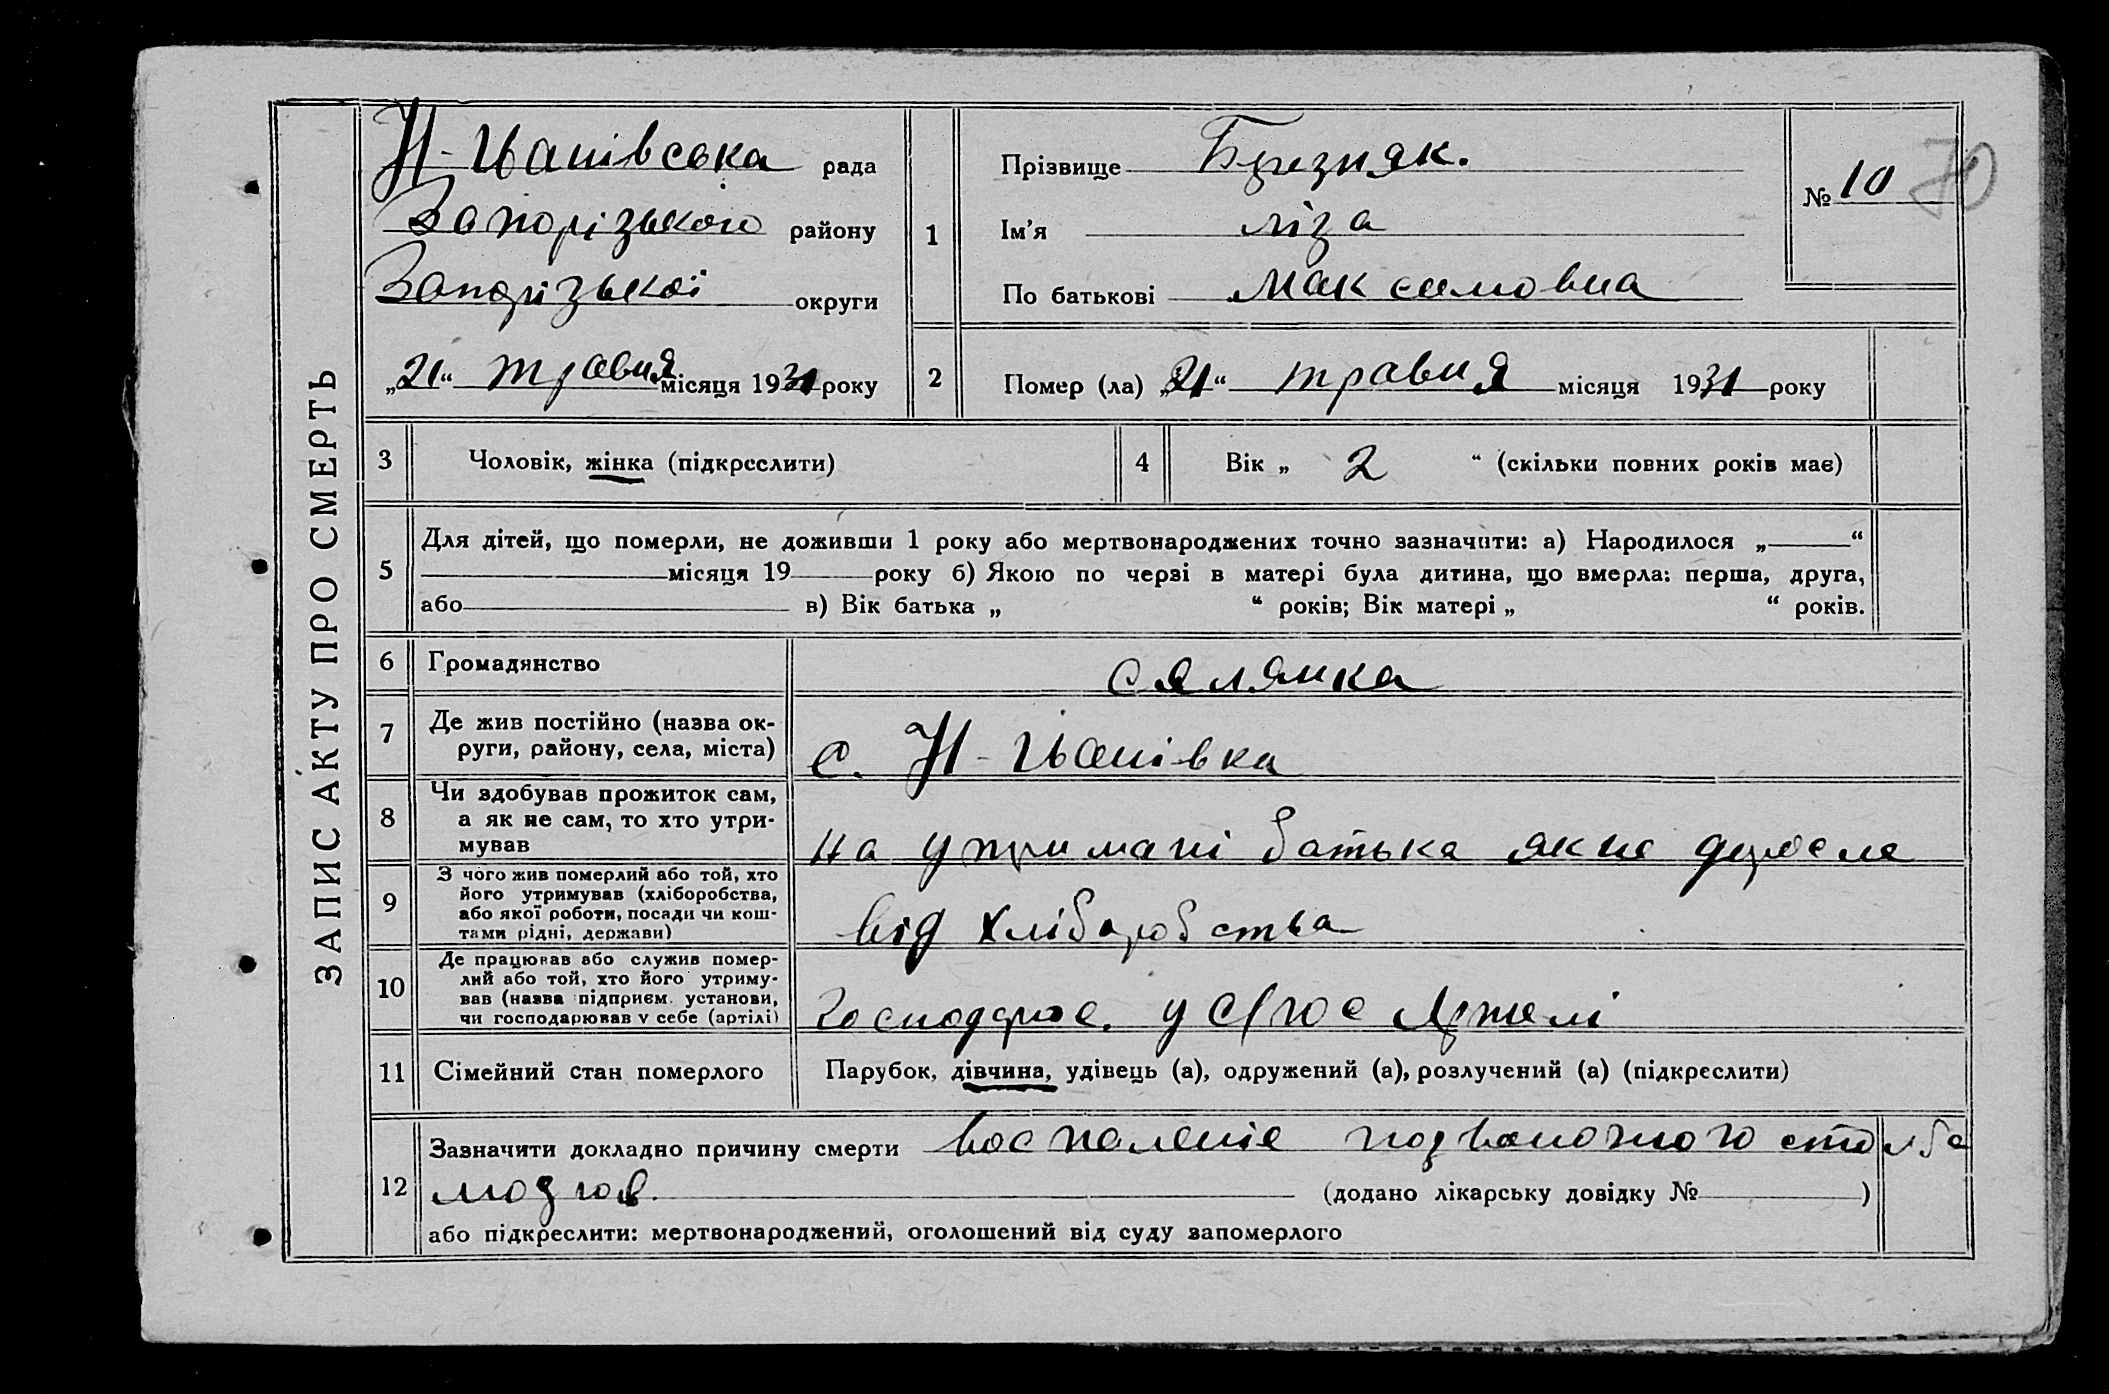 ЗАПИС АКТУ ПРО СМЕРТЬ
Н-Іванівська рада
Запорізького району
Запорізької округи
„21“ травня місяця 1931 року
1
Прізвище Березняк.
Ім'я ліза
По батькові Максимовна
№ 10
70
2 Помер (ла) „21“ травня місяця 1931 року
3 Чоловік, жінка (підкреслити)
4 Вік „ 2 “ (скільки повних років має)
5
Для дітей, що померли, не доживши 1 року або мертвонароджених точно зазначити: а) Народилося „ “
місяця 19 року б) Якою по черзі в матері була дитина, що вмерла: перша, друга,
або в) Вік батька „ “ років; Вік матері „ “ років.
6 Громадянство селянка
7 Де жив постійно (назва ок-
руги, району, села, міста) с. Н-Іванівка
8 Чи здобував прожиток сам,
а як не сам, то хто утри-
мував на утримані батька як не
9 З чого жив померлий або той, хто
його утримував (хліборобства,
або якої роботи, посади чи кош-
тами рідні, держави) від хліборобства
10 Де працював або служив помер-
лий або той, хто його утриму-
вав (назва підприєм. установи,
чи господарював у себе (артілі) у артелі
11 Сімейний стан померлого Парубок, дівчина, удівець (а), одружений (а), розлучений (а) (підкреслити)
12
Зазначити докладно причину смерти воспаленіе подзвоночного столба
мозгов. (додано лікарську довідку № )
або підкреслити: мертвонароджений, оголошений від суду запомерлого